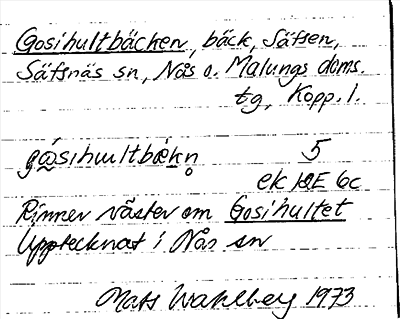 Gosihultbäcken, bäck, Säfsen,
Säfsnäs sn, Nås o. Malungs doms.
tg, Kopp. l.
gósihuultbäkn̥ 5
ek 12E 6c
Rinner väster om Gosihultet
Upptecknat i Nås sn
Mats Wahlberg 1973